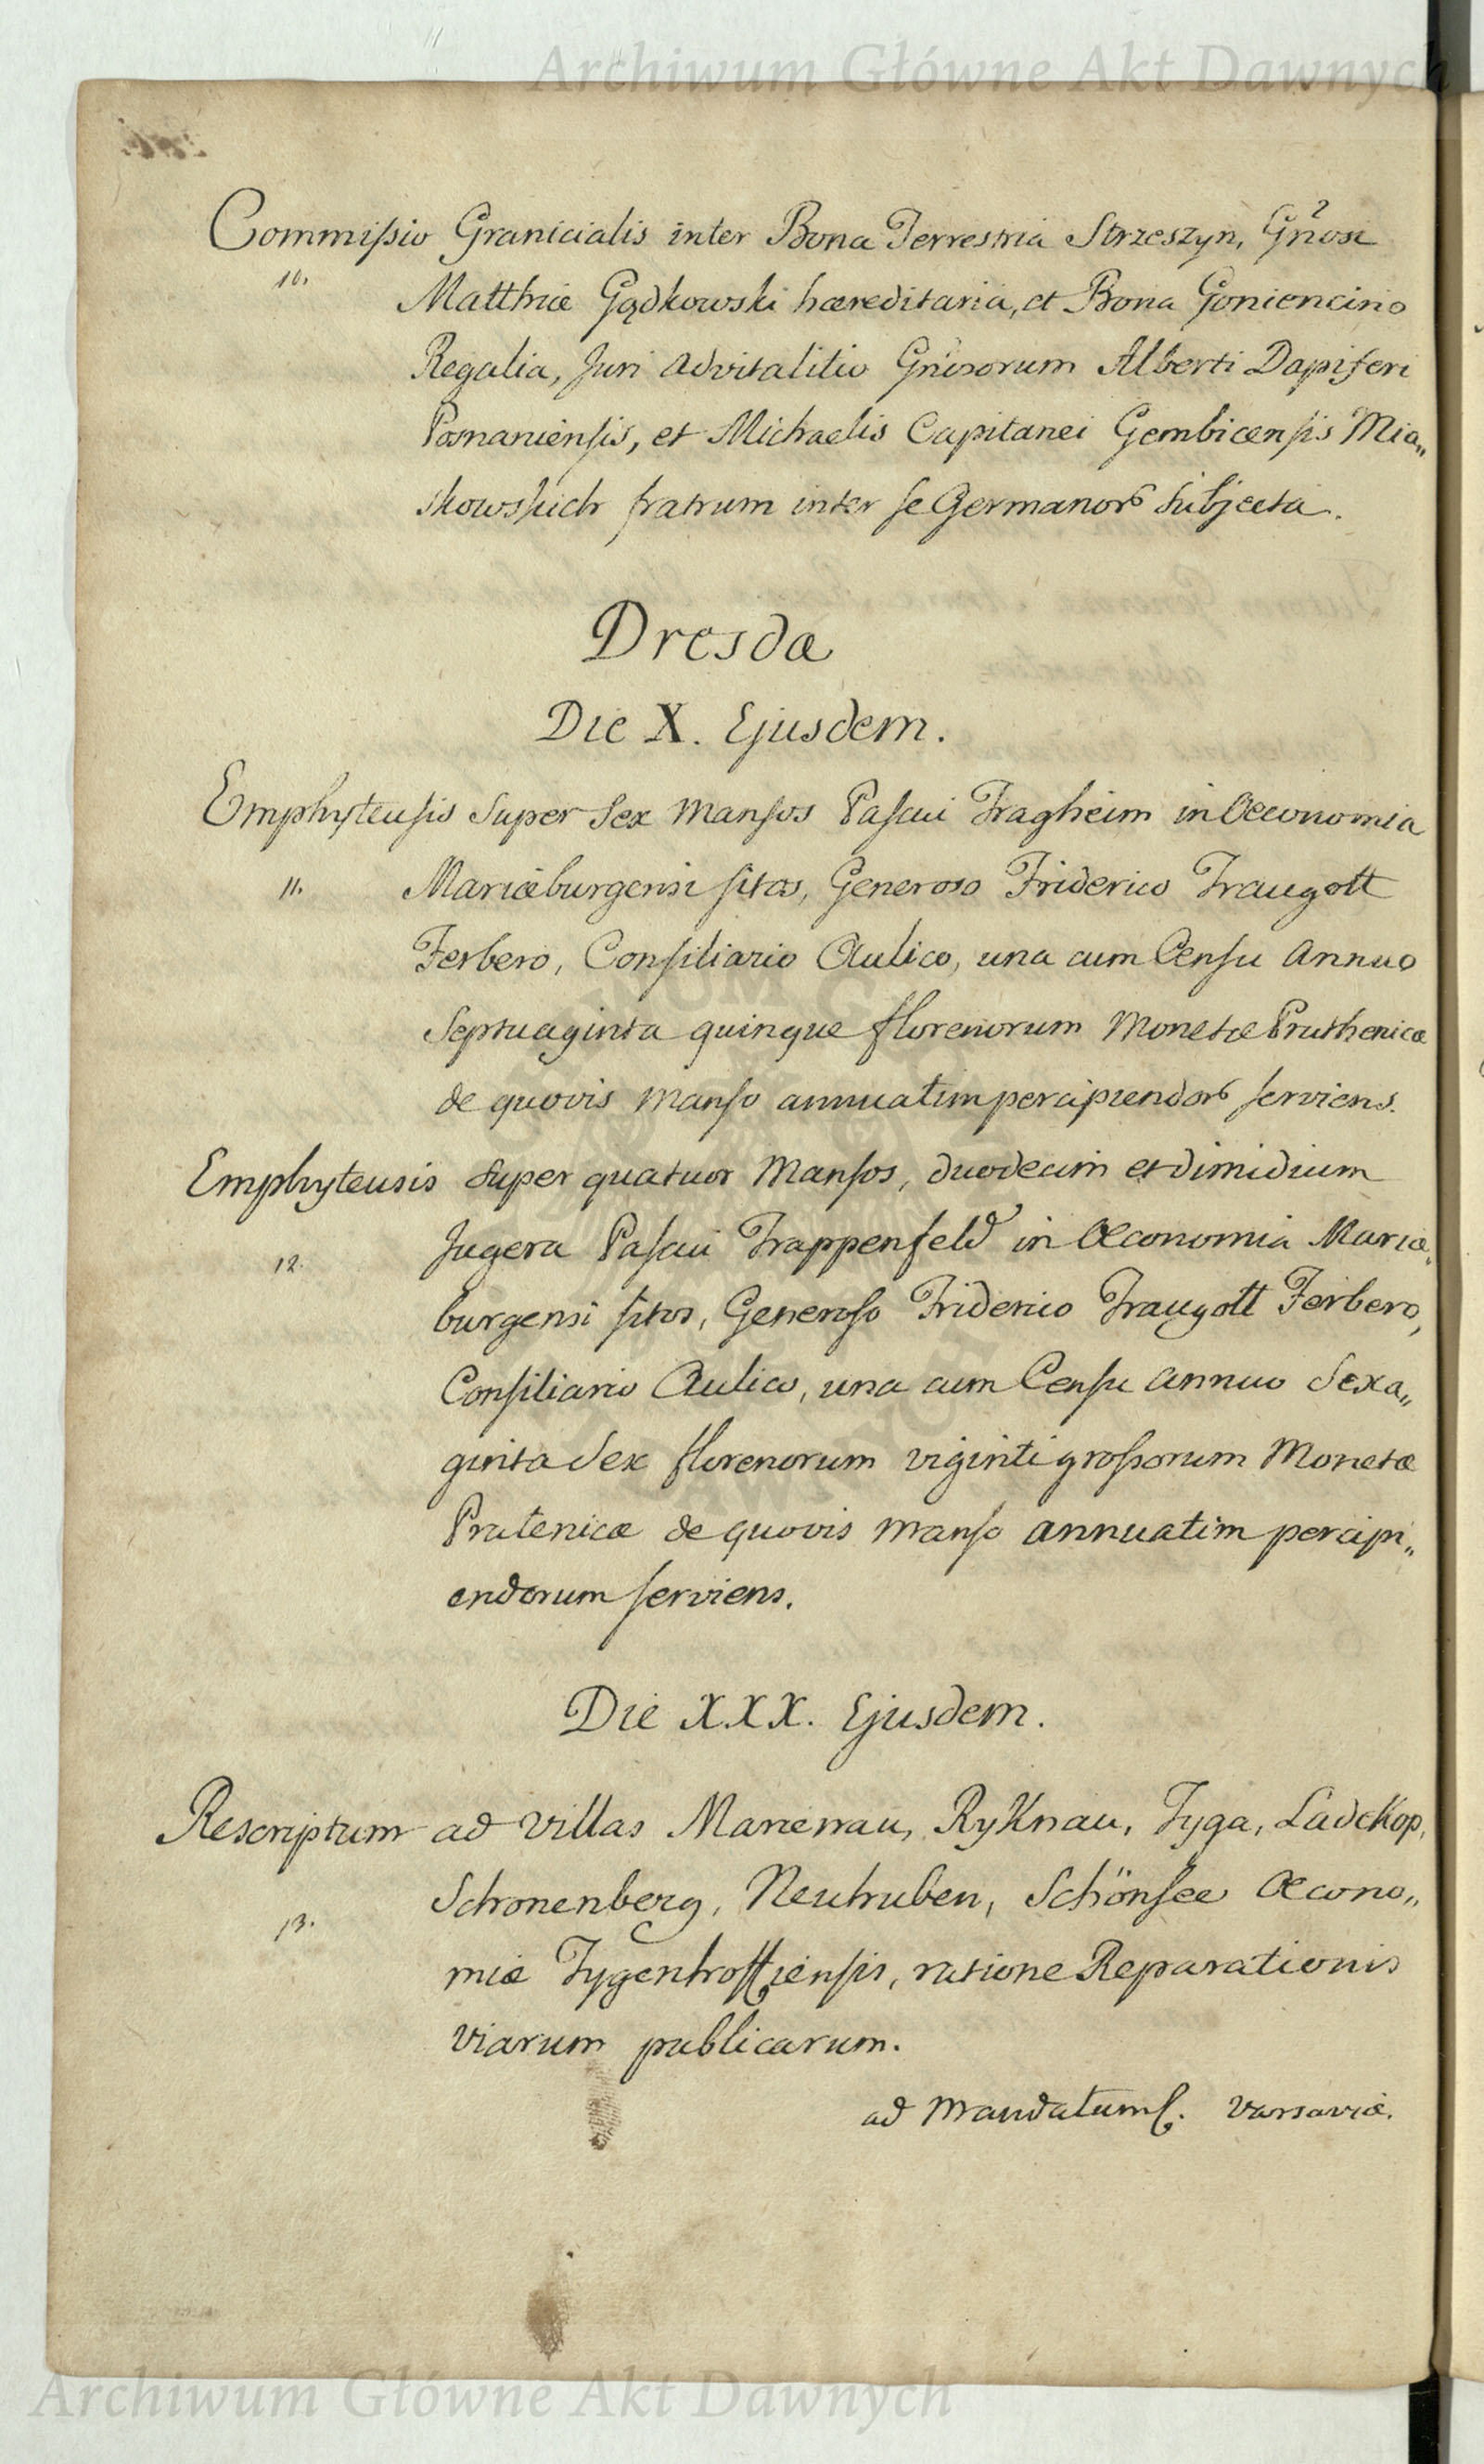 Archiwum Główne Akt Dawnych
Commiſsio Granicialis inter Bona Terrestria Strzeszyn, Gn̄osi
10.
Matthiæ Gądkowski hæreditaria, et Bona Goniencino
Regalia, Juri advitalitio Gn̄osorum Alberti Dapiferi
Posnanienſis, et Michaelis Capitanei Gembicenſis Mia„
skowskich fratrum inter ſe Germanor̄ subjecta.
Dresdæ
Die X. Ejusdem.
Emphyteuſis Super Sex Manſos Paſcui Tragheim in Œconomia
11.
Mariæburgensi ſitos, Generoso Friderico Traugott
Ferbero, Conſiliario Aulico, una cum Cenſu Annuo
Septuaginta quinque florenorum Monetæ Pruthenicæ
de quovis Manſo annuatim percipiendor̄ ſerviens.
Emphyteusis super quatuor Manſos, duodecim et dimidium
12.
Jugera Paſcui Trappenfeld in Œconomia Mariæ„
burgensi ſitos, Generoſo Friderico Traugott Ferbero,
Conſiliario Aulico, una cum Cenſu annuo Sexa„
ginta Sex florenorum viginti groſsorum Monetæ
Prutenicæ de quovis manſo annuatim percipi„
endorum ſerviens.
Die XXX. Ejusdem.
Rescriptum ad villas Marienau, RyKnau, Tyga, LadeKop,
13.
Schonenberg, Neuhuben, Schönſee Œcono„
miæ Tygenhoffienſis, ratione Reparationis
viarum publicarum.
ad Mandatum Varsaviæ.
Archiwum Główne Akt Dawnych